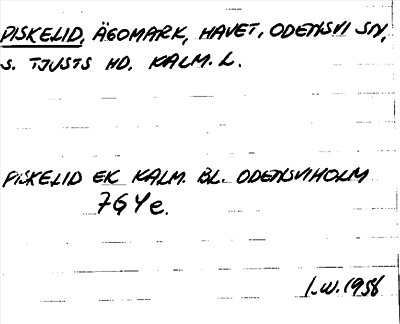 PISKELID, ÄGOMARK, HAVET, ODENSVI SN,
S. TJUSTS HD, KALM. L.
PISKELID EK KALM. BL. ODENSVIHOLM
7G4e.
I.W.1958